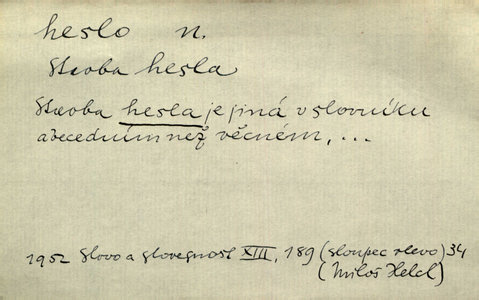 heslo n.
Stavba hesla
Stavba hesla je jiná v slovníku
abecedním než věcném, ...
1952 Slovo a slovesnost XIII, 189 (sloupec vlevo) 34
(Miloš Helcl)